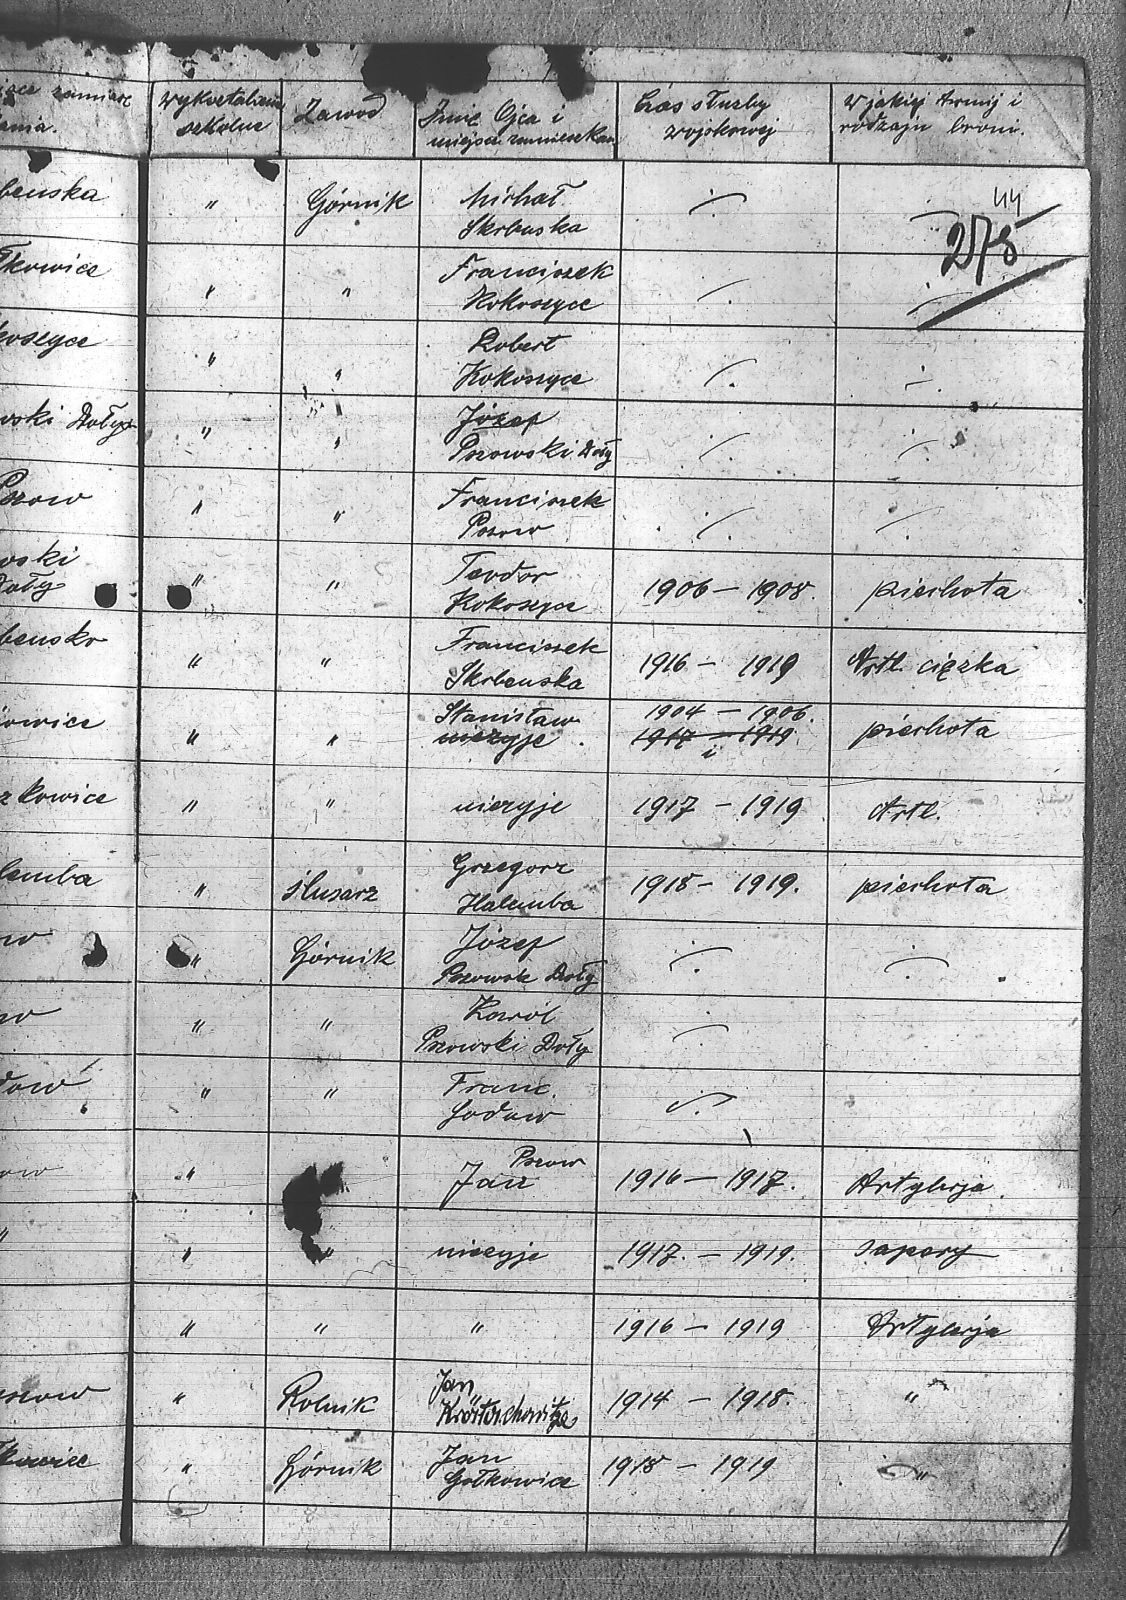 wykształcenie szkolne Zawód Imię Ojca i miejsce zamieszkan. Czas służby wojskowej w jakiej Armij i rodzaju broni.
44
275
benska " Górnik Michał Skrbenska
tkowice " " Franciszek Kokoszyce
koszyce " " Robert Kokoszyce
wski Doły " " Józef Pszowski Doły
Pszow " " Franciszek Pszow
wski Doły " " Teodor Kokoszyce 1906 – 1908. piechota
bensko " " Franciszek Skrbenska 1916 – 1919 Artl. ciężka
owice " " Stanisław nieżyje 1904 – 1906. i 1917 – 1919 piechota
zkowice " " nieżyje 1917 – 1919 Artl.
lemba " ślusarz Grzegorz Halemba 1918 – 1919. piechota
ow " Górnik Józef Pszowsk Doły
ow " " Karol Pszowski Doły
dow " " Franc. Godow
ow " Pszow Jan 1916 – 1917. Artylerja.
" " " nieżyje 1917. – 1919. sapery
" " " 1916 – 1919 Artylerja
szow " Rolnik Jan 1914 – 1918. "
tkowice " Górnik Jan Gołkowice 1918 – 1919 "